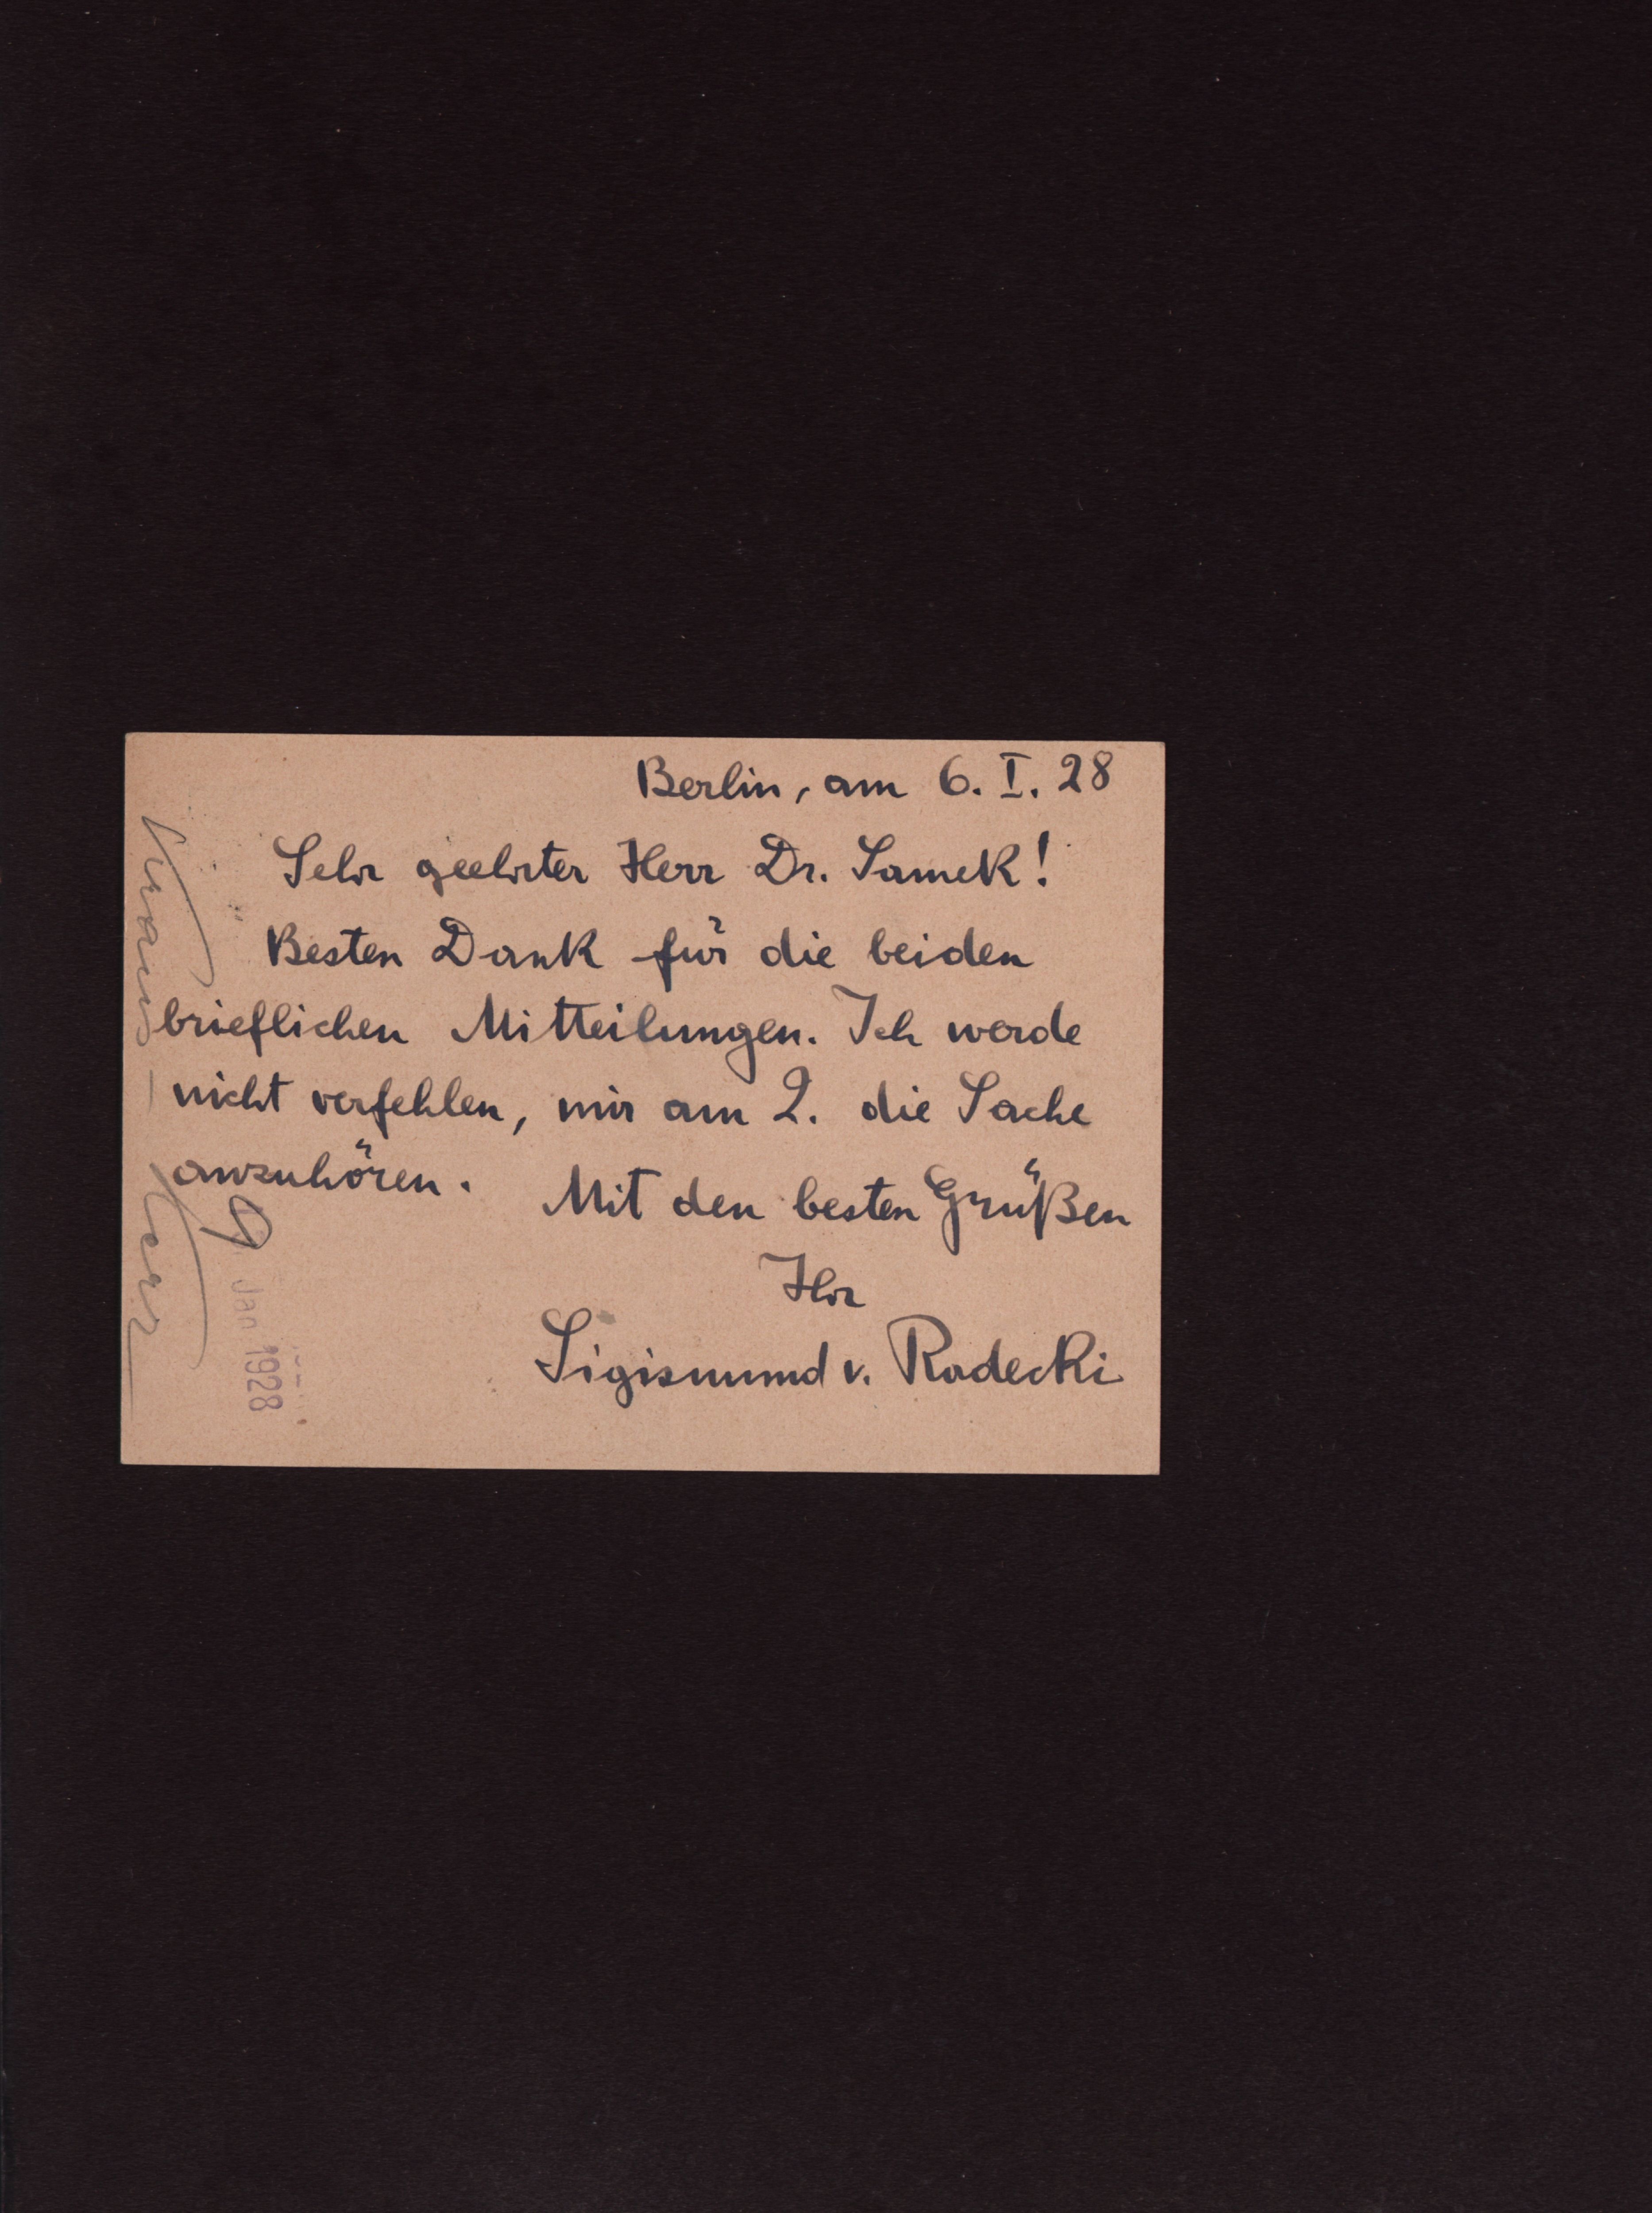 Berlin, am 6. I. 28
Sehr geehrter Herr Dr. Samek!
Besten Dank für die beiden
brieflichen Mitteilungen. Ich werde
nicht verfehlen, mir am 2. die Sache
anzuhören.
Mit den besten Grüßen
Ihr
Sigismund v. Radecki
Kraus - Kerr
9 Jan 1928